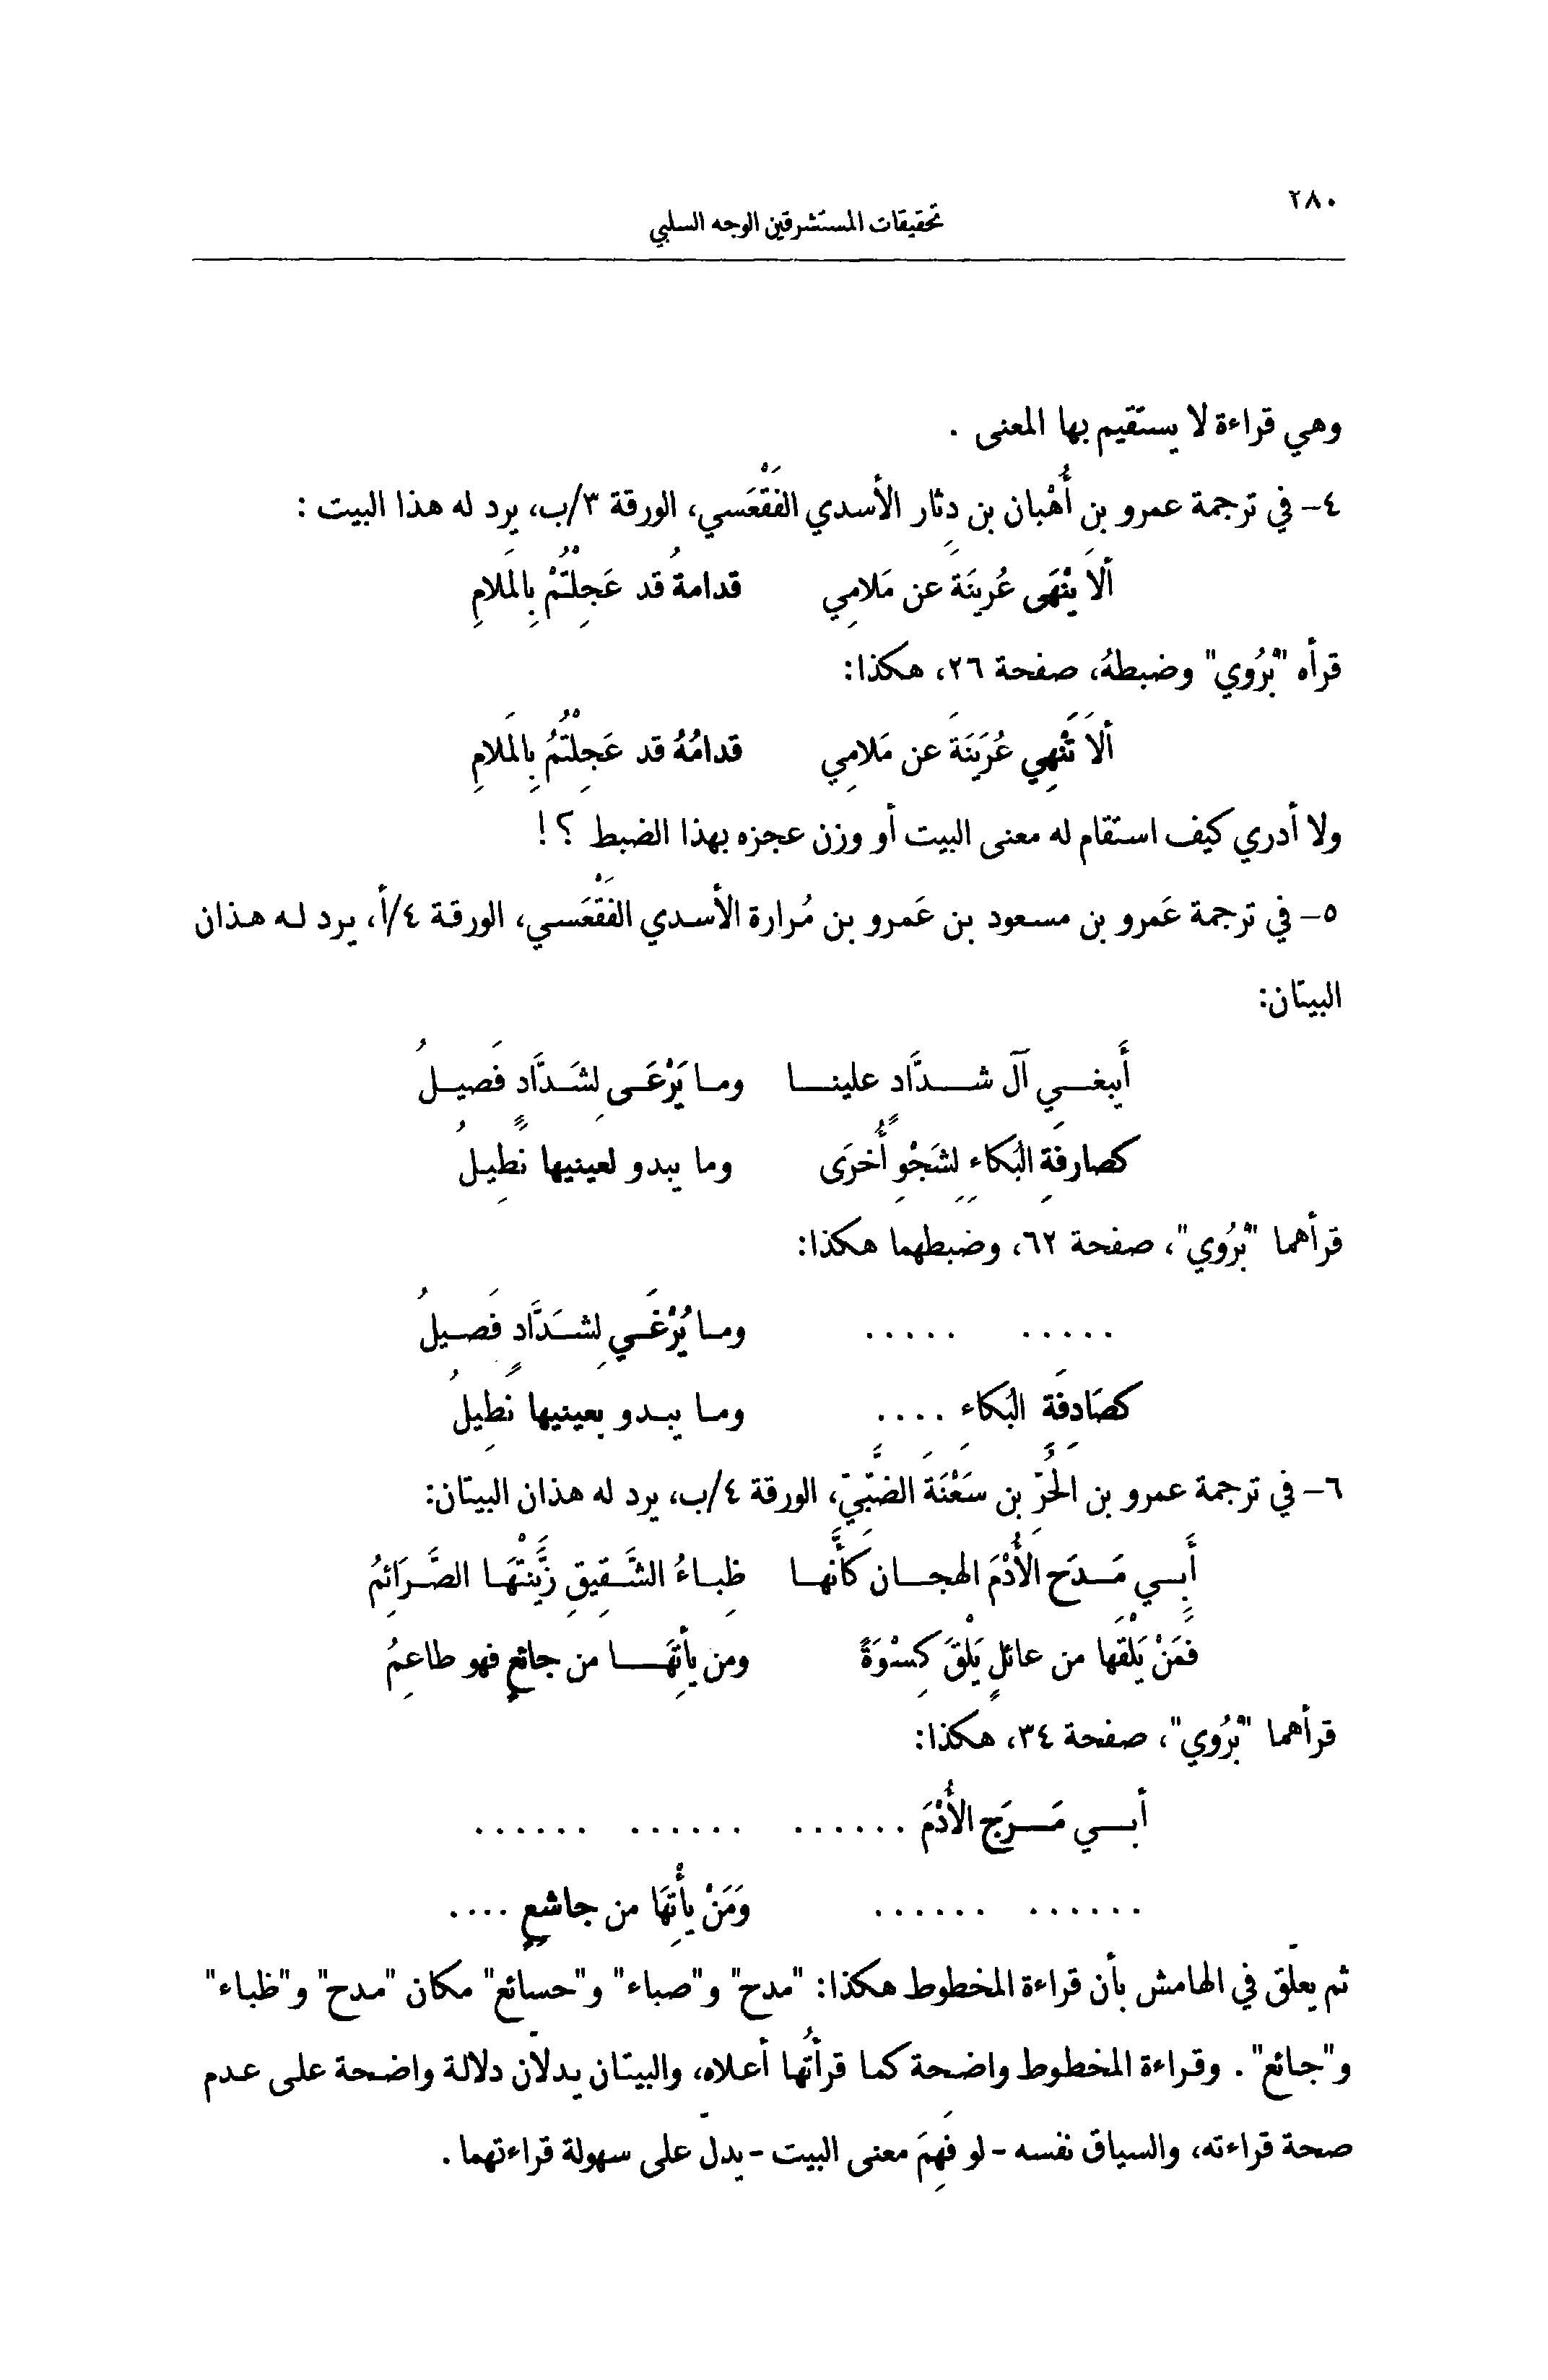 ٢٨٠
تحقيقات المستشرقين الوجه السلبي
وهي قراءة لا يستقيم بها المعنى .
٤- في ترجمة عمرو بن أُهْبان بن دِثار الأسدي الفَقْعَسي، الورقة ٣/ب، يرد له هذا البيت :
ألاَ يَنْهَى عُرينَةَ عن مَلامِي قدامةُ قد عَجِلْتُمْ بِالمَلامِ
قرأه "بْرُوي" وضبطهُ، صفحة ٢٦، هكذا:
ألاَ تَنْهِي عُرَينَةَ عن مَلامِي قدامُهُ قد عَجِلْتُمُ بِالمَلامِ
ولا أدري كيف استقام له معنى البيت أو وزن عجزه بهذا الضبط ؟ !
٥- في ترجمة عَمرو بن مسعود بن عَمرو بن مُرارة الأسدي الفَقْعَسي، الورقة ٤/أ، يرد له هذان
البيتان:
أَيبغي آلَ شدَّادٍ علينا وما يَرْعَى لِشَدَّادٍ فَصيلُ
كصارِفَةِ البُكاءِ لِشَجْوِ أُخرَى وما يبدو لعينيها نَطِيلُ
قرأهما "بْرُوي"، صفحة ٦٢، وضبطهما هكذا:
..... ..... وما يُرْغَي لِشدَّادٍ فَصيلُ
كصَادِفَةِ البُكاءِ .... وما يبدو بعينيها نَطِيلُ
٦- في ترجمة عمرو بن الحُرّ بن سَعْنَةَ الضبّيّ، الورقة ٤/ب، يرد له هذان البيتان:
أَبِي مَدَحَ الأُدْمَ الهِجان كأنَّها ظِباءُ الشَّقِيقِ زَيَّنَتْهَا الصَّرَائِمُ
فَمَنْ يَلْقَها من عائلٍ يَلْقَ كِسْوَةً ومن يأتِهَا من جائعٍ فهو طاعِمُ
قرأهما "بْرُوي"، صفحة ٣٤، هكذا:
أبي مَرَج الأُدْمَ ...... ...... ......
...... ...... وَمَنْ يأْتِهَا من جاشعٍ ....
ثم يعلّق في الهامش بأن قراءة المخطوط هكذا: "مدح" و"صباء" و"حسائع" مكان "مدح" و"ظباء"
و"جائع" . وقراءة المخطوط واضحة كما قرأتُها أعلاه، والبيتان يدلاّن دلالة واضحة على عدم
صحة قراءته، والسياق نفسه - لو فَهِمَ معنى البيت - يدلّ على سهولة قراءتهما .